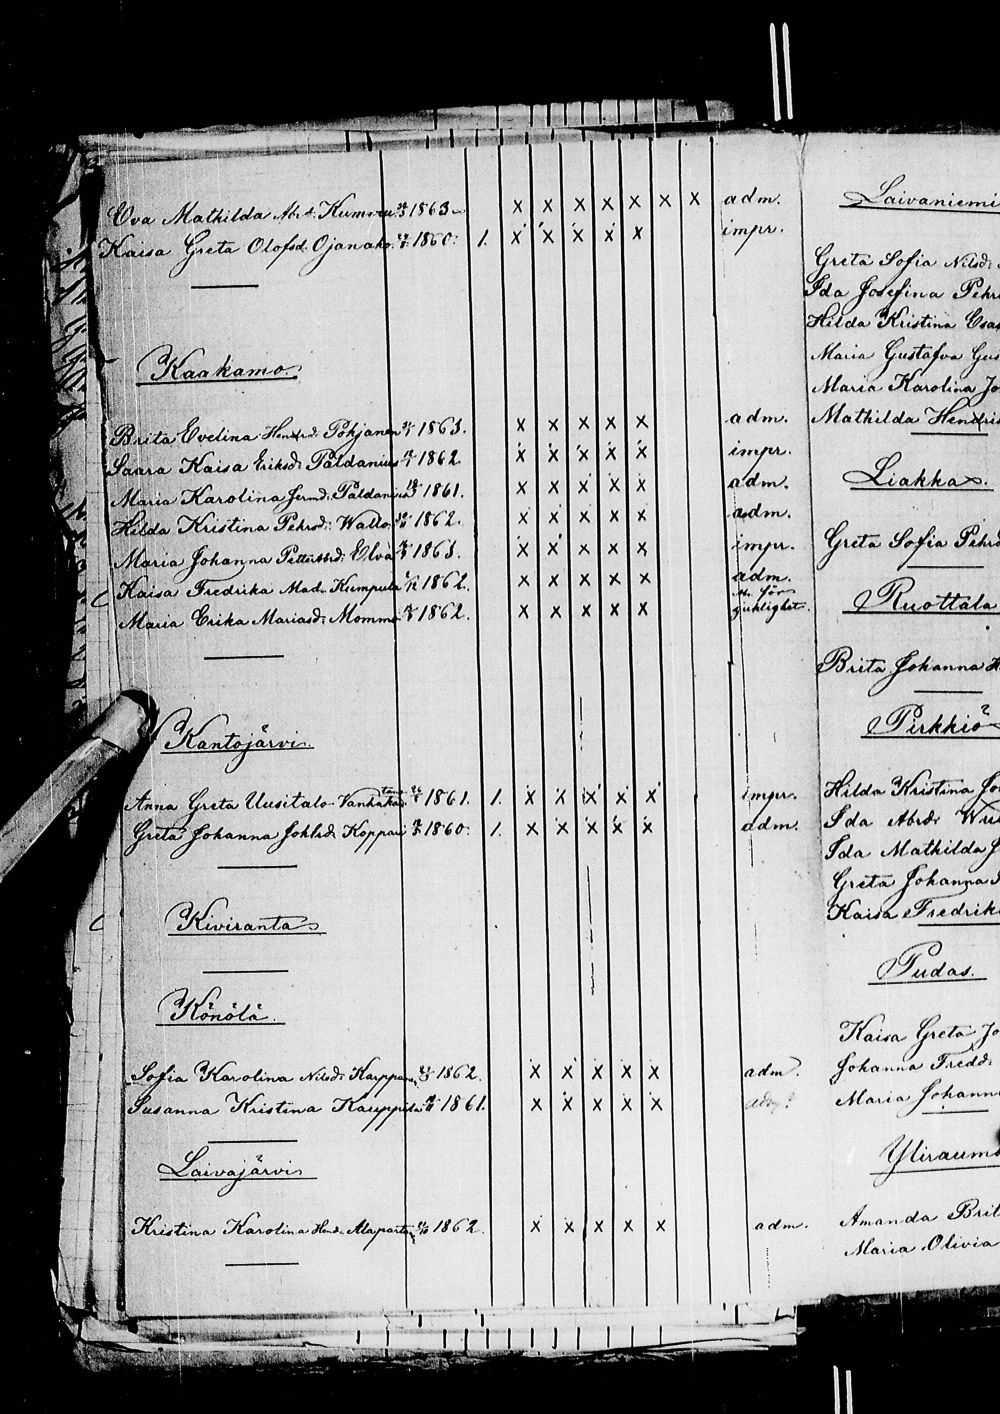 Eva Mathilda Abr.d. Kumvu 1863 x x x x x x x adm.
Kaisa Greta Olofsd. Ojanako 1860. 1. x x x x x impr.
Kaakamo.
Brita Evelina Hendrsd. Pohjanen 1863. x x x x x adm.
Saara Kaisa Eriksd. Paldanius 1862 x x x x x impr.
Maria Karolina Jermd. Paldanius 1861. x x x x x adm.
Hilda Kristina Pehrsd. Wallo 1862. x x x x x adm.
Maria Johanna Pettersd. Elvä 1863. x x x x x impr.
Kaisa Fredrika Mad. Kumpula 1862. x x x x x adm.
Maria Erika Mariasd. Mommo 1862. x x x x x
Kantojärvi.
Anna Greta Uusitalo Vanhaka 1861. 1. x x x x x impr.
Greta Johanna Johksd. Koppari 1860. 1. x x x x x adm.
Kiviranta
Könölä.
Sofia Karolina Nilsd. Karppa 1862. x x x x x adm.
Susanna Kristina Kauppila 1861. x x x x x
Laivajärvi
Kristina Karolina Hend. Alaparta 1862. x x x x x adm.
Laivaniemi
Greta Sofia Nilsd.
Ida Josefina Pehr
Hilda Kristina Esa
Maria Gustafva Gus
Maria Karolina Jo
Mathilda Hendri
Liakka.
Greta Sofia Pehr
Ruottala
Brita Johanna H
Pirkkiö
Hilda Kristina Jo
Ida Abrd.
Ida Mathilda J
Greta Johanna
Kaisa Fredrik
Pudas.
Kaisa Greta Jo
Johanna Fredd.
Maria Johann
Yliraumo
Amanda Brit
Maria Olivia